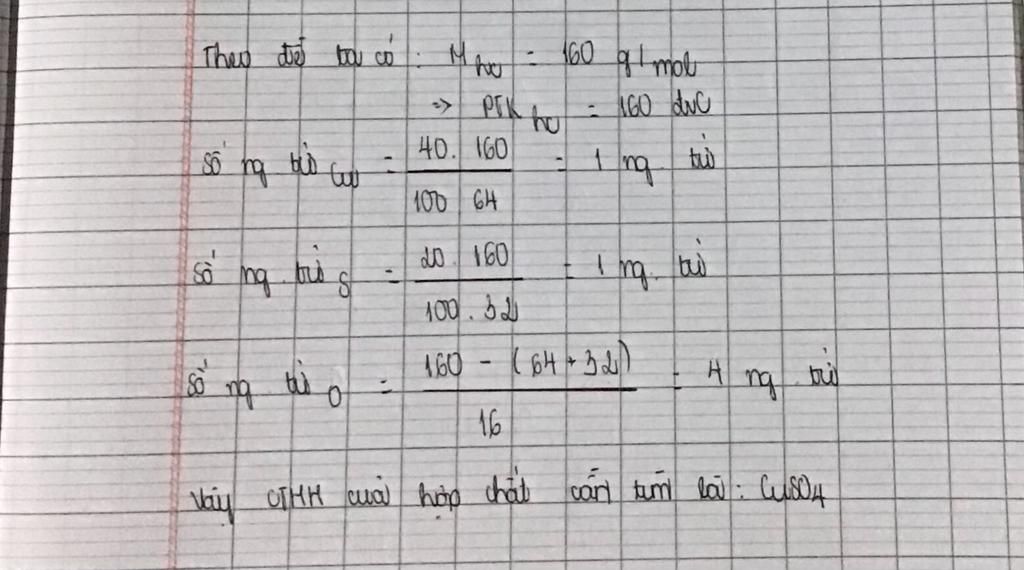 Theo đề ta có : M hc = 160 g/mol
=> PTK hc = 160 đvC
Số ng tử Cu = 40. 160 / 100 64 = 1 ng tử
Số ng tử S = 20 160 / 100 . 32 = 1 ng. tử
Số ng tử O = 160 - (64+32) / 16 = 4 ng tử
Vậy CTHH của hợp chất cần tìm là : CuSO4